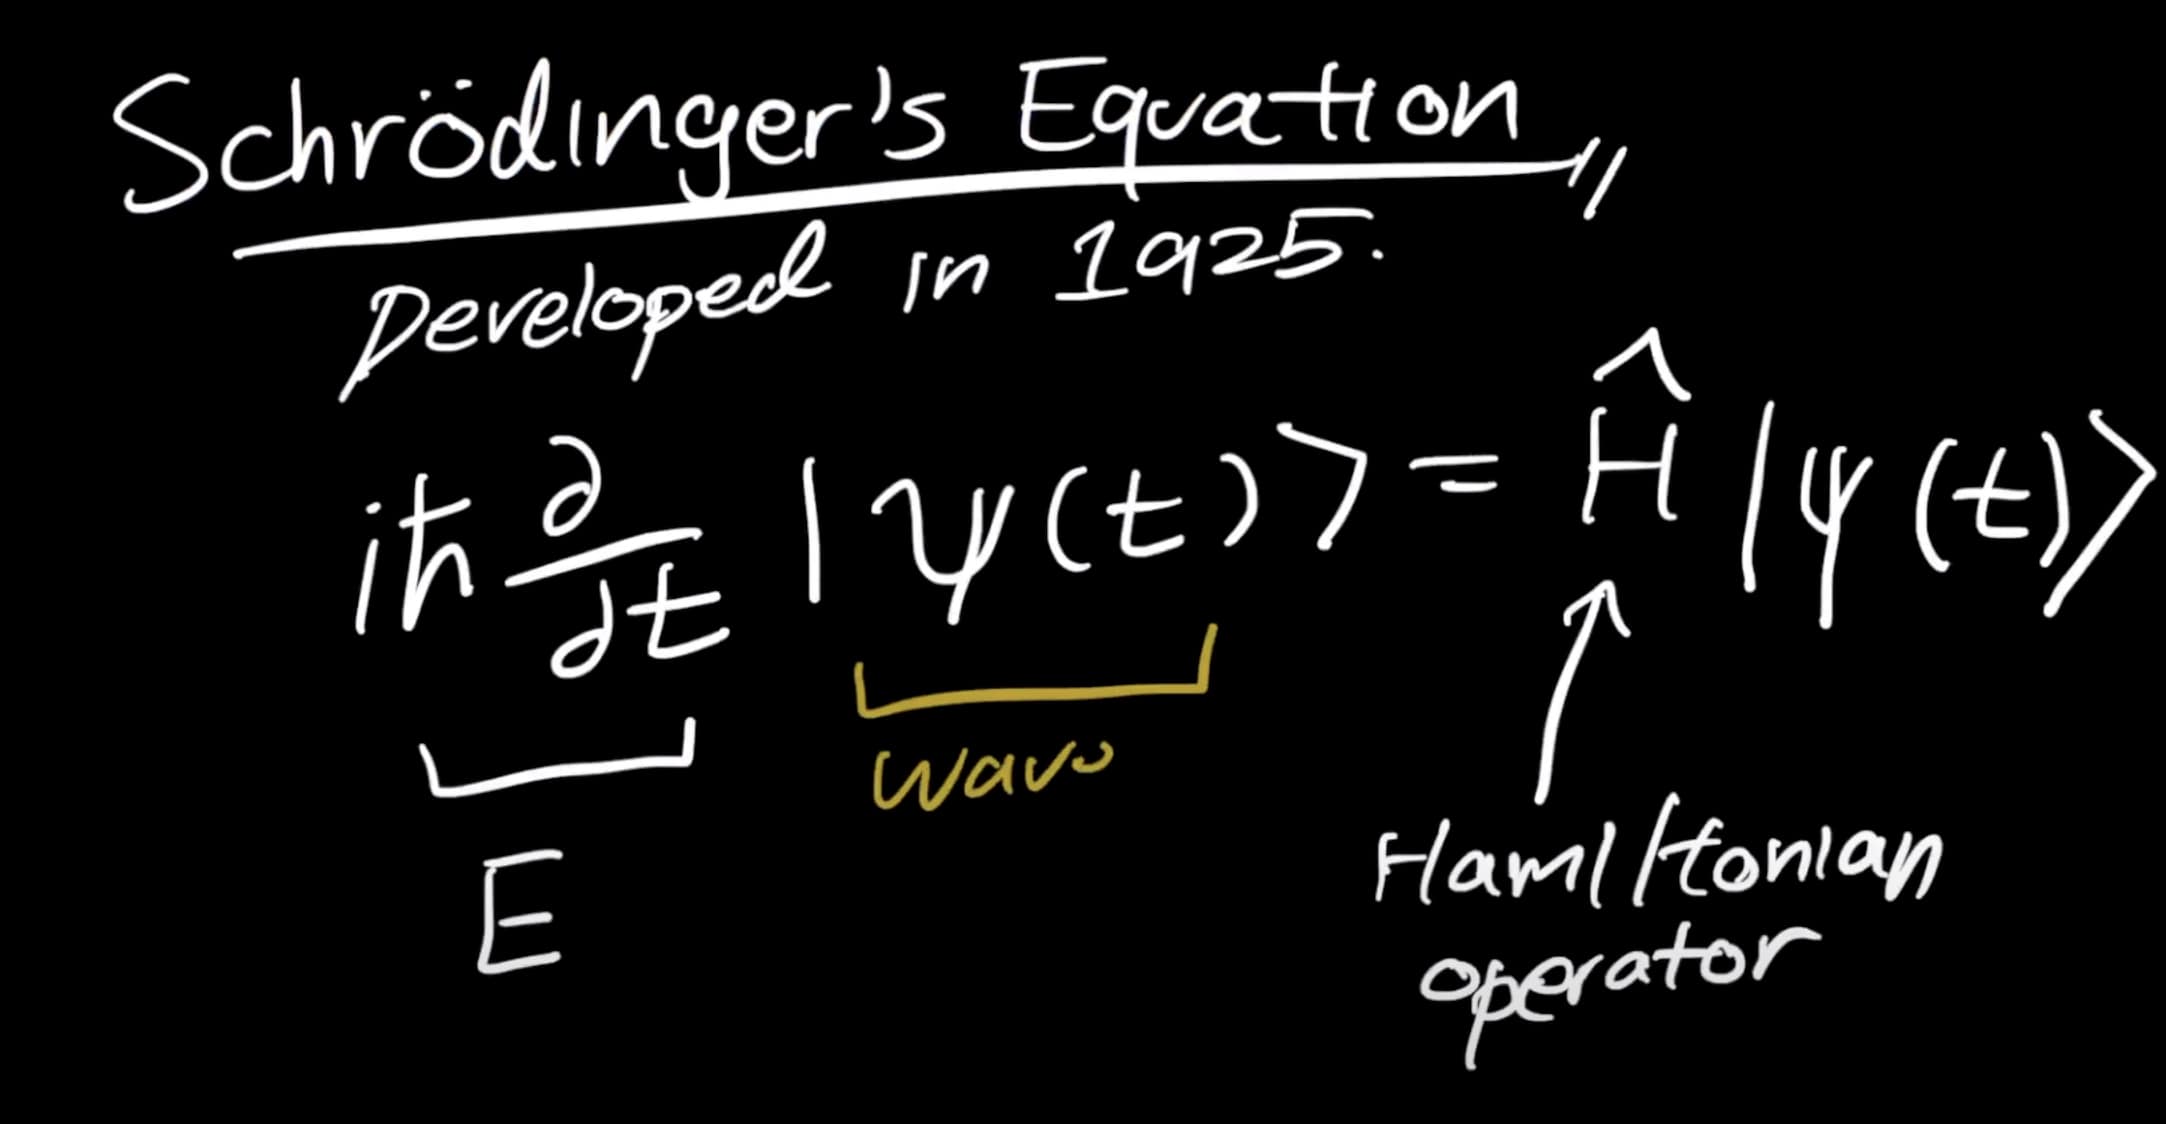 Schrödinger's Equation
Developed in 1925.
iħ ∂/∂t |ψ(t)⟩ = Ĥ |ψ(t)⟩
wave
E
Hamiltonian
operator